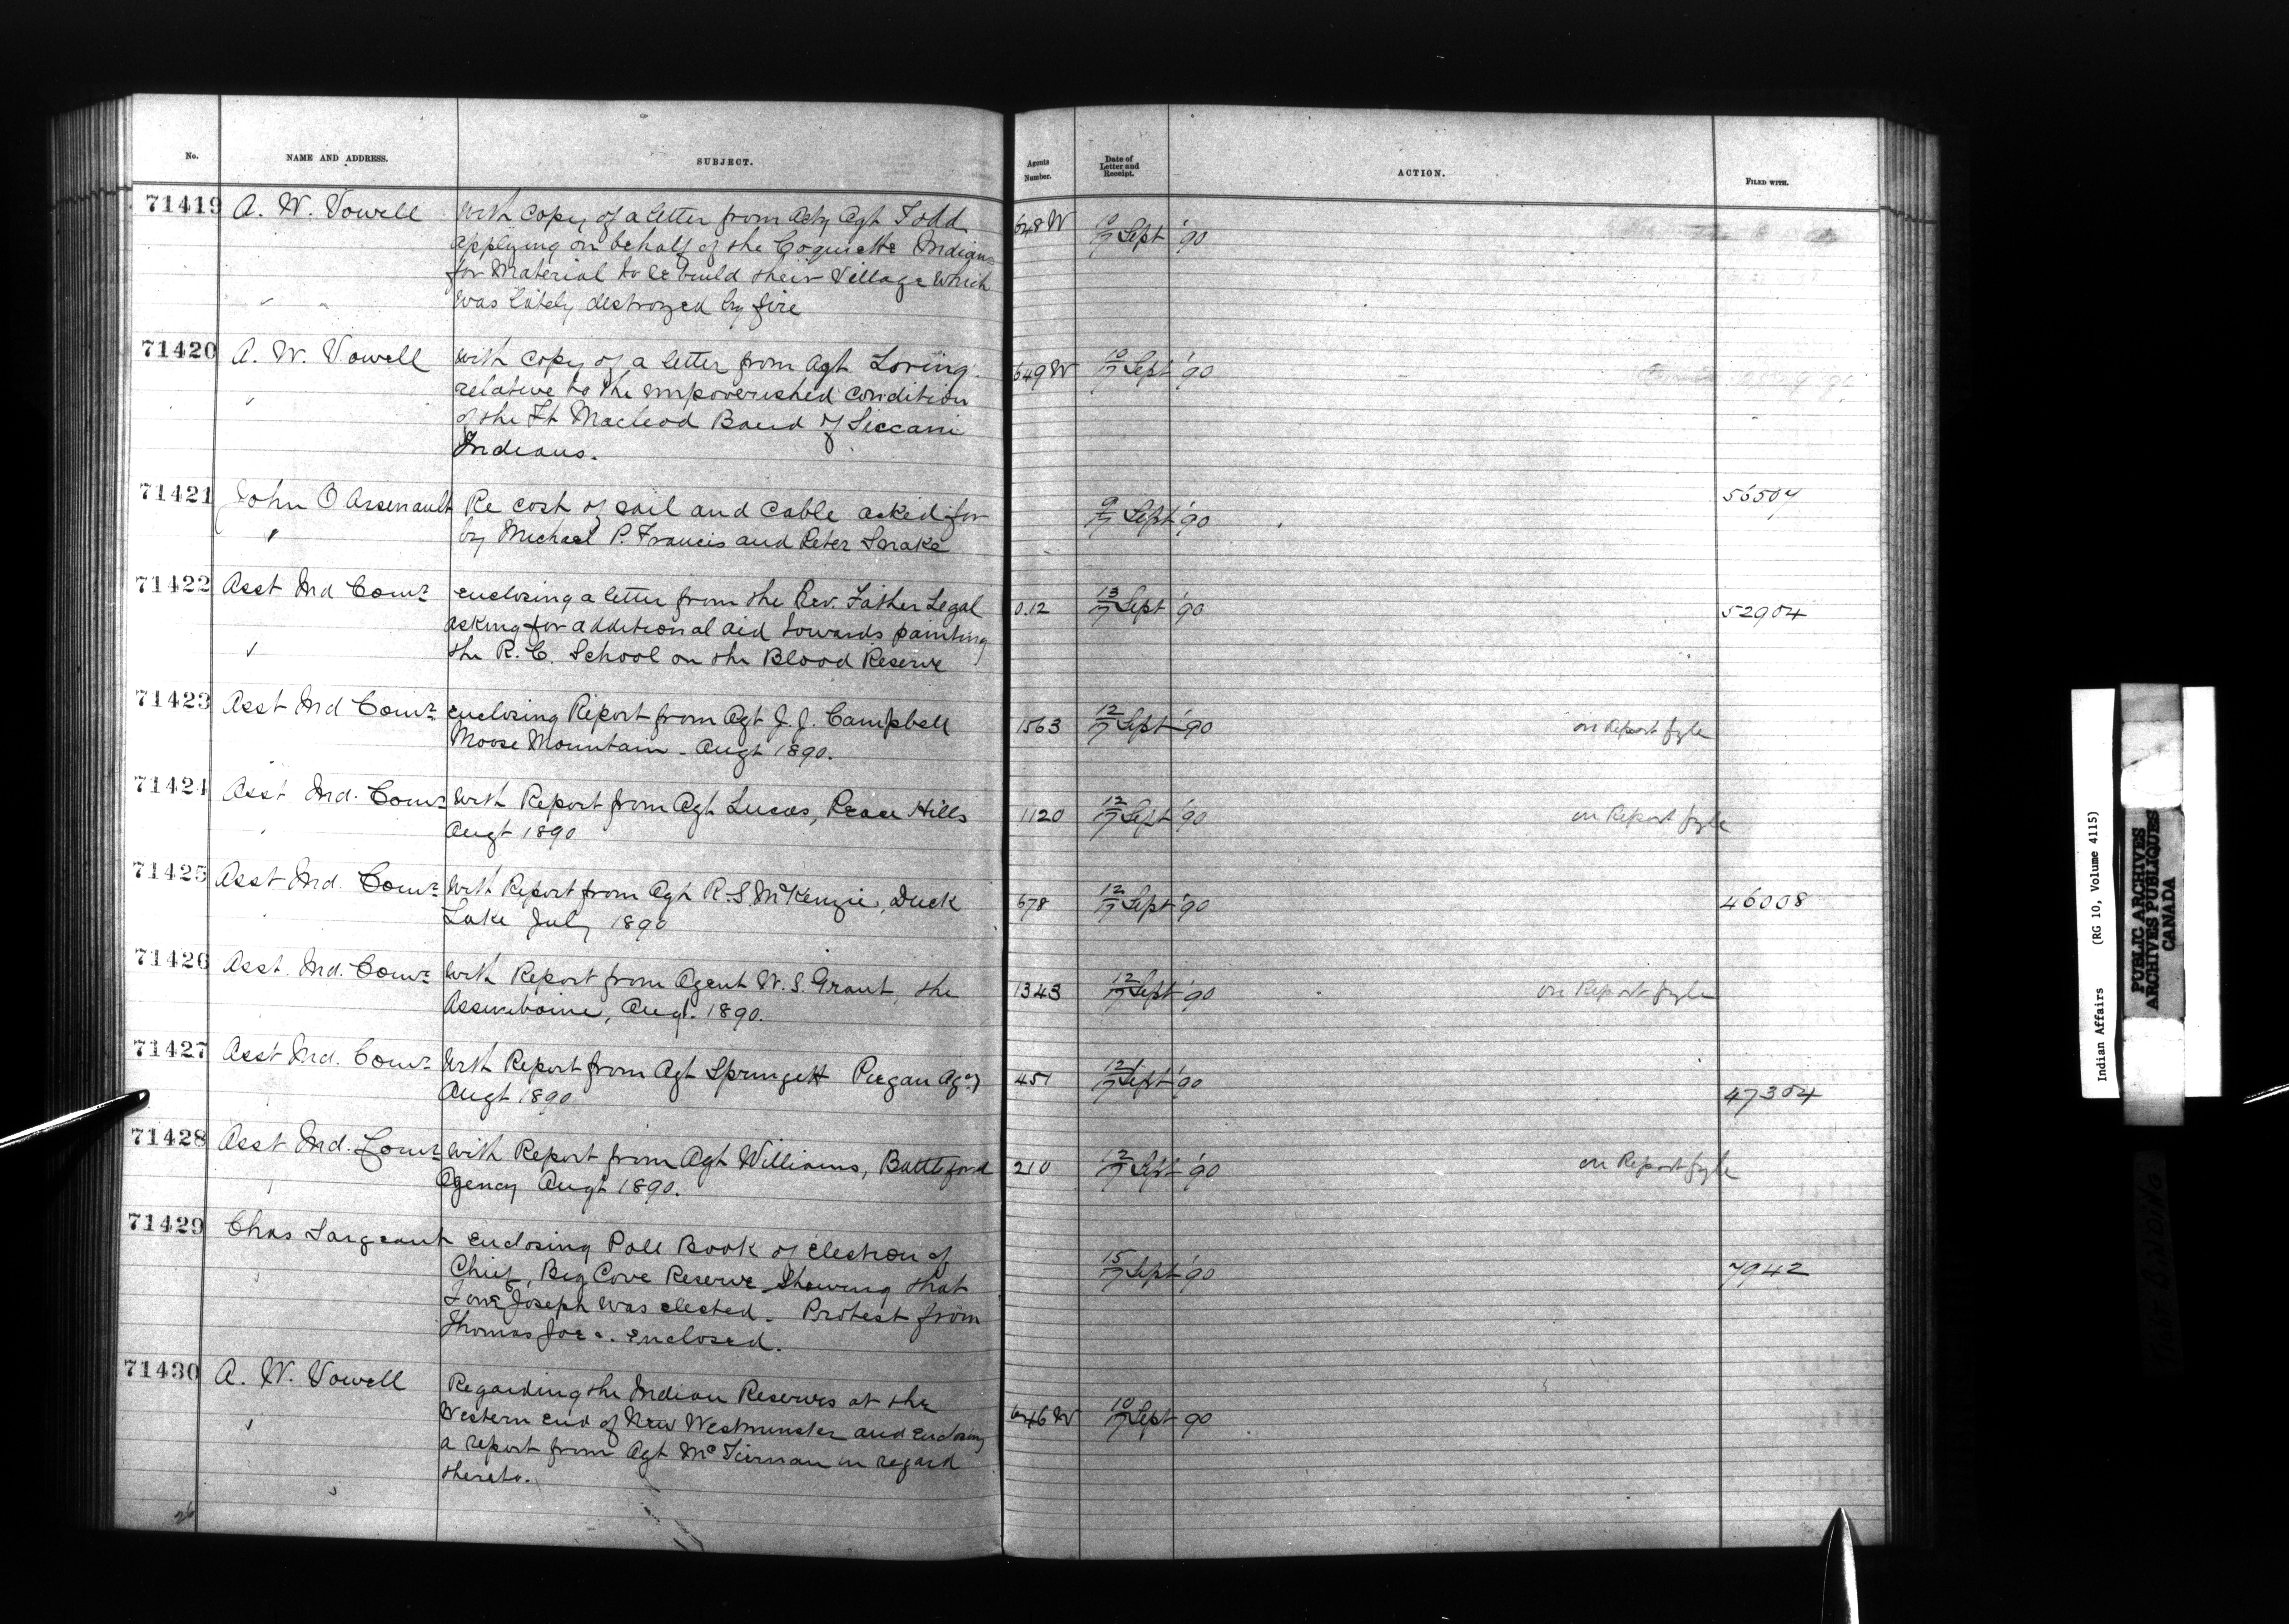 No. NAME AND ADDRESS. SUBJECT. Agents Number. Date of Letter and Receipt. ACTION. FILED WITH.
71419 A. W. Vowell With copy of a letter from Actg Agt Todd 648 W 10/17 Sept '90
applying on behalf of the Coquiette Indians
for Material to re build their Village which
was lately destroyed by fire
71420 A. W. Vowell With copy of a letter from Agt Loring 649 W 10/17 Sept '90
relative to the impoverished condition
of the Ft Macleod Band of Siccani
Indians.
71421 John O Arsenault Re cost of sail and cable asked for 9/17 Sept '90 56507
by Michael P. Francis and Peter Snake
71422 Asst Ind Comr enclosing a letter from the Rev. Father Legal 0.12 13/17 Sept '90 52904
asking for additional aid towards painting
the R. C. School on the Blood Reserve
71423 Asst Ind Comr enclosing Report from Agt J. J. Campbell 1563 12/17 Sept '90 on Report fyle
Moose Mountain - Augt 1890.
71424 Asst Ind. Comr With Report from Agt Lucas, Peace Hills 1120 12/17 Sept '90 on Report fyle
Augt 1890
71425 Asst Ind. Comr With Report from Agt R. S McKenzie, Duck 678 12/17 Sept '90 46008
Lake July 1890
71426 Asst. Ind. Comr With Report from Agent W. S. Grant, the 1343 12/17 Sept '90 on Report fyle
Assiniboine, Augt. 1890.
71427 Asst Ind. Comr With Report from Agt Springett Piegan Agcy 451 12/17 Sept '90 47304
Augt 1890
71428 Asst Ind. Comr With Report from Agt Williams, Battleford 210 12/17 Sept '90 on Report fyle
Agency Augt 1890.
71429 Chas Sargeant enclosing Poll Book of election of 15/17 Sept '90 7942
Chief, Big Cove Reserve Shewing that
Joseph was elected. Protest from
Thomas Joe enclosed.
71430 A. W. Vowell Regarding the Indian Reserves at the 646 W 10/17 Sept 90
Western end of New Westminster and enclosing
a report from Agt McTiernan in regard
thereto.
Indian Affairs (RG 10, Volume 4115)
PUBLIC ARCHIVES
ARCHIVES PUBLIQUES
CANADA